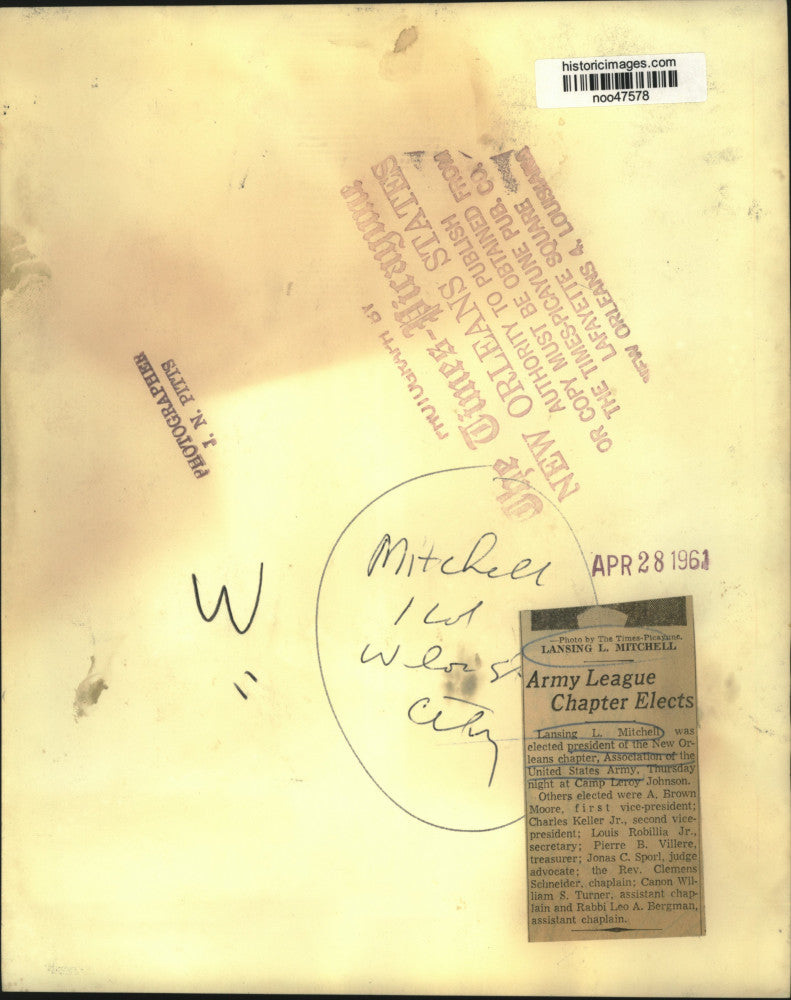 historicimages.com
noo47578
PHOTOGRAPH BY
The Times-Picayune
NEW ORLEANS STATES
AUTHORITY TO PUBLISH
OR COPY MUST BE OBTAINED FROM
THE TIMES-PICAYUNE PUB. CO.
LAFAYETTE SQUARE
NEW ORLEANS 4, LOUISIANA
PHOTOGRAPHER
J. N. PITTS
Mitchell
1 col
W
City
APR 28 1961
—Photo by The Times-Picayune.
LANSING L. MITCHELL
Army League
Chapter Elects
Lansing L. Mitchell was
elected president of the New Or-
leans chapter, Association of the
United States Army, Thursday
night at Camp Leroy Johnson.
Others elected were A. Brown
Moore, first vice-president;
Charles Keller Jr., second vice-
president; Louis Robillia Jr.,
secretary; Pierre B. Villere,
treasurer; Jonas C. Sporl, judge
advocate; the Rev. Clemens
Schneider, chaplain; Canon Wil-
liam S. Turner, assistant chap-
lain and Rabbi Leo A. Bergman,
assistant chaplain.